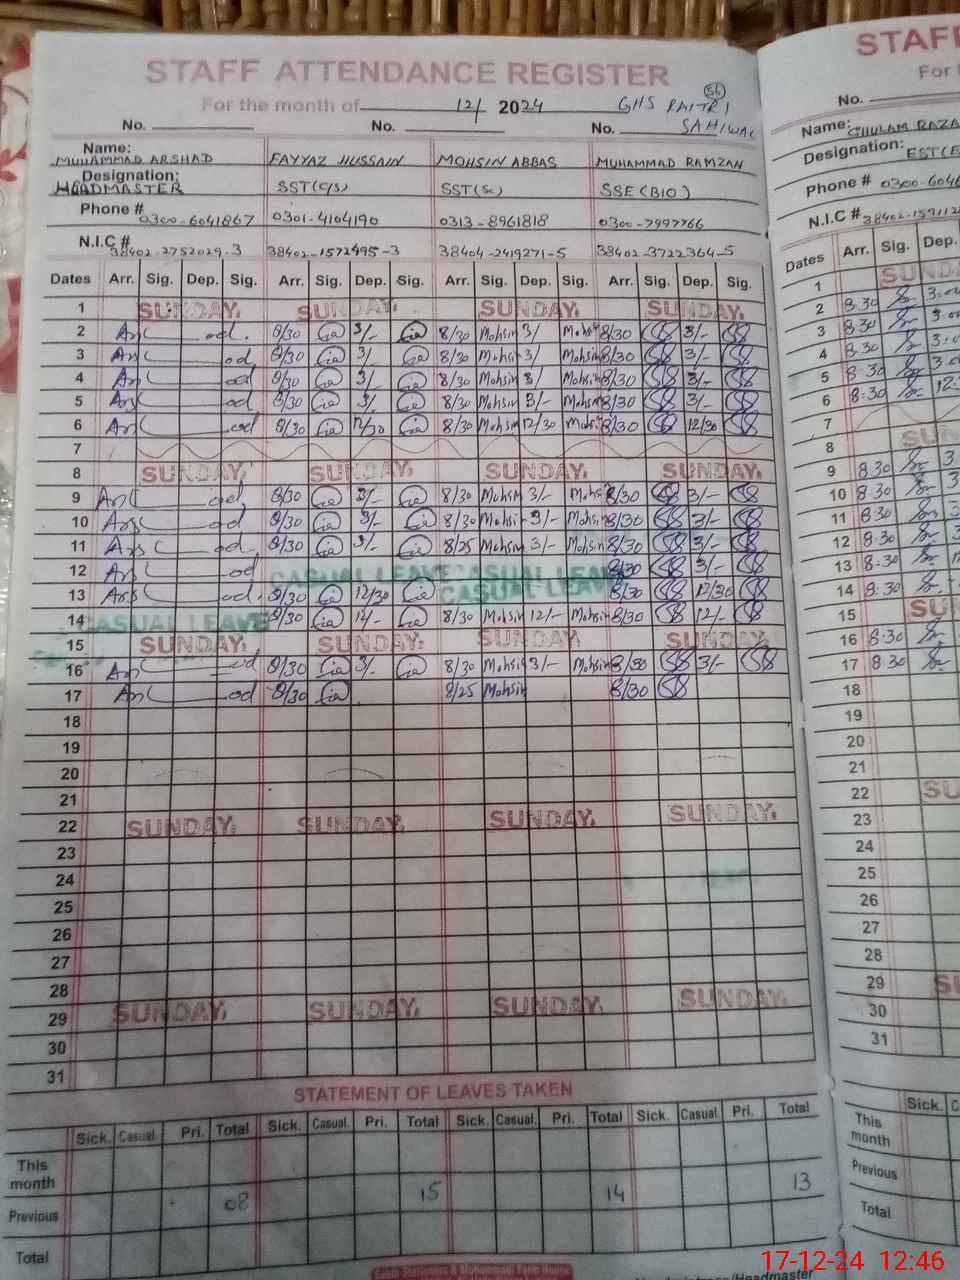 STAFF ATTENDANCE REGISTER
For the month of 12/ 2024 GHS
SAHIWAL
No. No. No.
Name:
MUHAMMAD ARSHAD FAYYAZ HUSSAIN MOHSIN ABBAS MUHAMMAD RAMZAN
Designation:
HEADMASTER SST(C/S) SST(SC) SSE(BIO)
Phone # 0300-6041867 0301-4104190 0313-8961818 0300-7997766
N.I.C # 38402-2752029-3 38402-1572495-3 38404-2419271-5 38402-3722364-5
Dates Arr. Sig. Dep. Sig. Arr. Sig. Dep. Sig. Arr. Sig. Dep. Sig. Arr. Sig. Dep. Sig.
1 SUNDAY. SUNDAY. SUNDAY. SUNDAY.
2 8/30 3/- 8/30 Mohsin 3/ Mohsin 8/30 3/-
3 8/30 3/ 8/30 Mohsin 3/ Mohsin 8/30 3/-
4 8/30 3/ 8/30 Mohsin 3/ Mohsin 8/30 3/-
5 8/30 3/ 8/30 Mohsin 3/- Mohsin 8/30 3/-
6 8/30 12/30 8/30 Mohsin 12/30 Mohsin 8/30 12/30
7
8 SUNDAY. SUNDAY. SUNDAY. SUNDAY.
9 8/30 3/- 8/30 Mohsin 3/- Mohsin 8/30 3/-
10 8/30 3/- 8/30 Mohsin 3/- Mohsin 8/30 3/-
11 8/30 3/- 8/25 Mohsin 3/- Mohsin 8/30 3/-
12 CASUAL LEAVE CASUAL LEAVE 8/30 3/-
13 8/30 12/30 CASUAL LEAVE 8/30 12/30
14 CASUAL LEAVE 8/30 12/- 8/30 Mohsin 12/- Mohsin 8/30 12/-
15 SUNDAY. SUNDAY. SUNDAY. SUNDAY.
16 8/30 3/- 8/30 Mohsin 3/- Mohsin 8/30 3/-
17 8/30 8/25 Mohsin 8/30
18
19
20
21
22 SUNDAY. SUNDAY. SUNDAY. SUNDAY.
23
24
25
26
27
28
29 SUNDAY. SUNDAY. SUNDAY. SUNDAY.
30
31
STATEMENT OF LEAVES TAKEN
Sick. Casual. Pri. Total Sick. Casual. Pri. Total Sick. Casual. Pri. Total Sick. Casual. Pri. Total
This month
Previous 08 15 14 13
Total
STAFF
For
No.
Name: GHULAM RAZA
Designation: EST(
Phone # 0300-604
N.I.C #
Dates Arr. Sig. Dep.
1 SUNDAY
2 8:30
3 8:30
4 8:30
5 8:30
6 8:30
7
8 SUN
9 8:30
10 8:30
11 8:30
12 8:30
13 8:30
14 8:30
15 SUN
16 8:30
17 8:30
18
19
20
21
22 SU
23
24
25
26
27
28
29
30
31
Sick. C
This month
Previous
Total
17-12-24 12:46